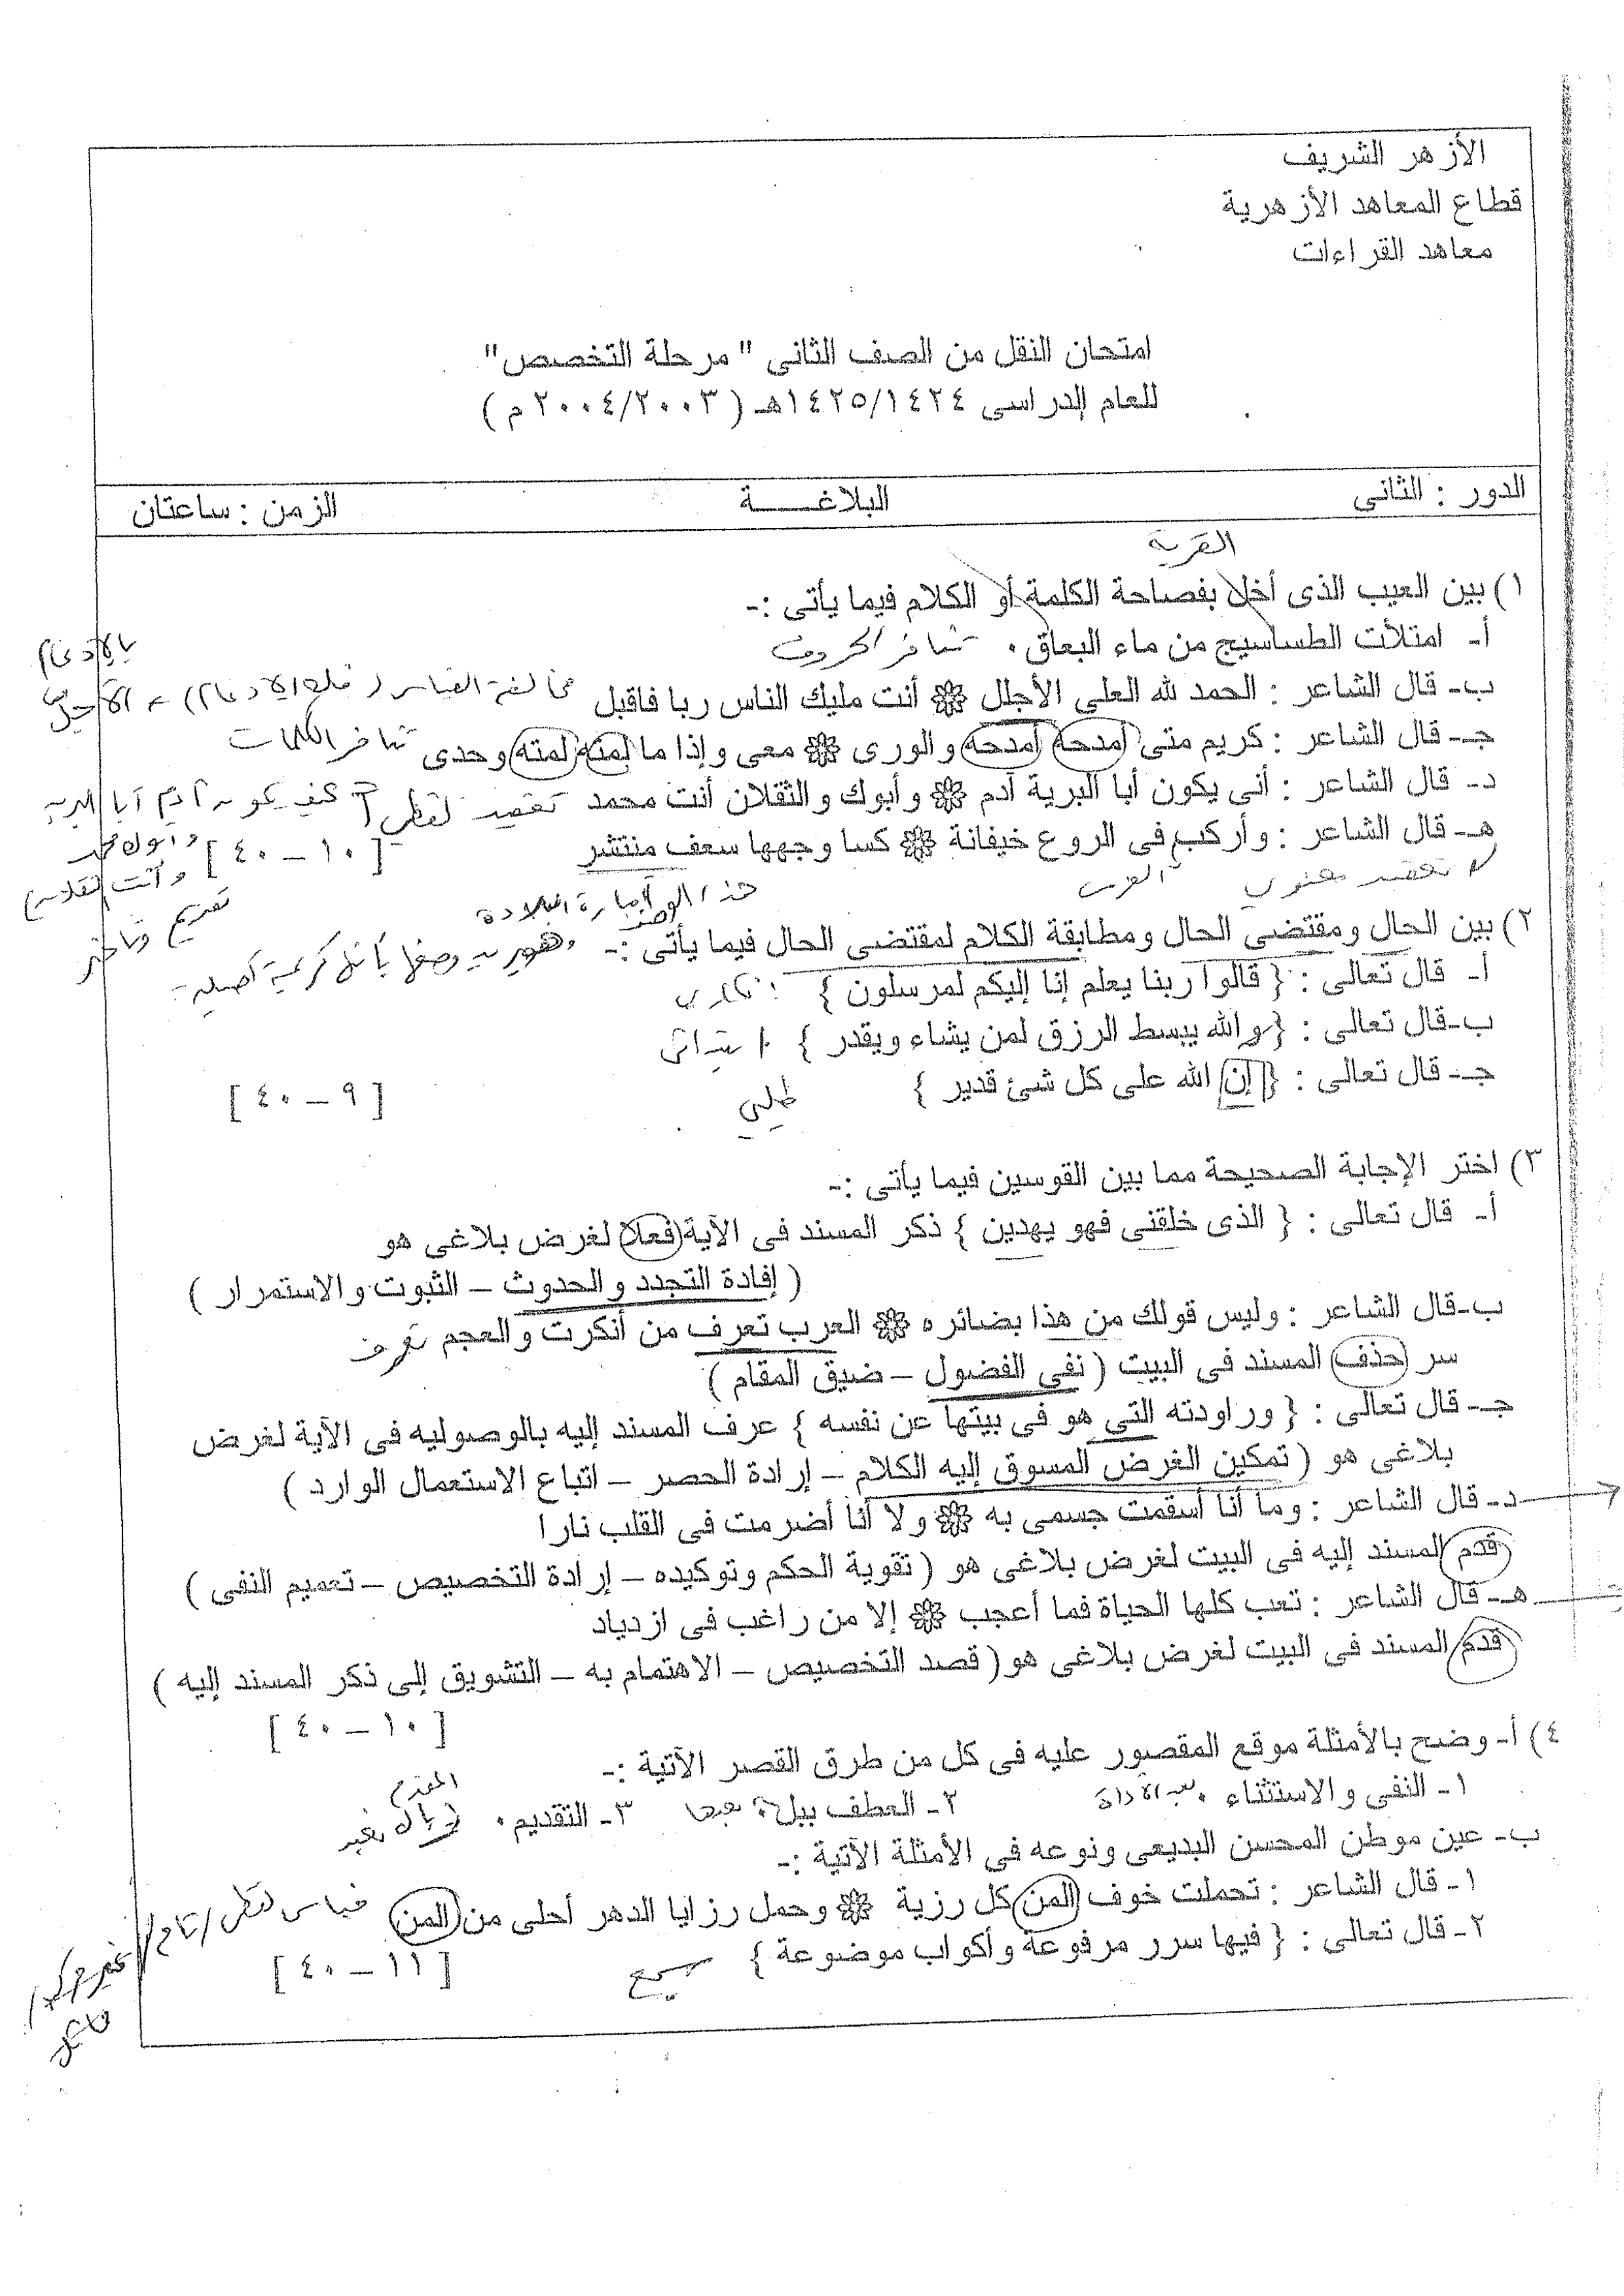 الأزهر الشريف
قطاع المعاهد الأزهرية
معاهد القراءات
امتحان النقل من الصف الثانى " مرحلة التخصص "
للعام الدراسى ١٤٢٥/١٤٢٤هـ ( ٢٠٠٤/٢٠٠٣ م )
الدور : الثانى البلاغــــــة الزمن : ساعتان
١) بين العيب الذى أخل بفصاحة الكلمة أو الكلام فيما يأتى :-
أ- امتلأت الطساسيج من ماء البعاق . تنافر الحروف
ب- قال الشاعر : الحمد لله العلى الأجلل ۞ أنت مليك الناس ربا فاقبل مخالفة القياس ( فك الإدغام ) الأجل بالإدغام
جـ- قال الشاعر : كريم متى أمدحه أمدحه والورى ۞ معى وإذا ما لمته لمته وحدى تنافر الكلمات
د- قال الشاعر : أنى يكون أبا البرية آدم ۞ وأبوك والثقلان أنت محمد تعقيد لفظى كيف يكون آدم أبا البرية
وأبوك محمد
وأنت الثقلان
تقديم وتأخير
هـ- قال الشاعر : وأركب فى الروع خيفانة ۞ كسا وجهها سعف منتشر [ ١٠ – ٤٠ ]
تعقيد معنوى
٢) بين الحال ومقتضى الحال ومطابقة الكلام لمقتضى الحال فيما يأتى :-
أ- قال تعالى : { قالوا ربنا يعلم إنا إليكم لمرسلون } إنكارى
ب- قال تعالى : { والله يبسط الرزق لمن يشاء ويقدر } ابتدائى
جـ- قال تعالى : { إن الله على كل شئ قدير } طلبى [ ٩ – ٤٠ ]
٣) اختر الإجابة الصحيحة مما بين القوسين فيما يأتى :-
أ- قال تعالى : { الذى خلقنى فهو يهدين } ذكر المسند فى الآية (فعلا) لغرض بلاغى هو
( إفادة التجدد والحدوث – الثبوت والاستمرار )
ب- قال الشاعر : وليس قولك من هذا بضائره ۞ العرب تعرف من أنكرت والعجم تعرف
سر حذف المسند فى البيت ( نفى الفضول – ضيق المقام )
جـ- قال تعالى : { وراودته التى هو فى بيتها عن نفسه } عرف المسند إليه بالوصوليه فى الآية لغرض
بلاغى هو ( تمكين الغرض المسوق إليه الكلام – إرادة الحصر – اتباع الاستعمال الوارد )
د- قال الشاعر : وما أنا أسقمت جسمى به ۞ ولا أنا أضرمت فى القلب نارا
قدم المسند إليه فى البيت لغرض بلاغى هو ( تقوية الحكم وتوكيده – إرادة التخصيص – تعميم النفى )
هـ- قال الشاعر : تعب كلها الحياة فما أعجب ۞ إلا من راغب فى ازدياد
قدم المسند فى البيت لغرض بلاغى هو ( قصد التخصيص – الاهتمام به – التشويق إلى ذكر المسند إليه )
[ ١٠ – ٤٠ ]
٤) أ- وضح بالأمثلة موقع المقصور عليه فى كل من طرق القصر الآتية :-
١- النفى والاستثناء . بعد الأداة ٢- العطف ببل . بعدها ٣- التقديم . المقدم
ب- عين موطن المحسن البديعى ونوعه فى الأمثلة الآتية :-
١- قال الشاعر : تحملت خوف المن كل رزية ۞ وحمل رزايا الدهر أحلى من المن جناس لفظى / تام /
٢- قال تعالى : { فيها سرر مرفوعة وأكواب موضوعة } سجع [ ١١ – ٤٠ ]